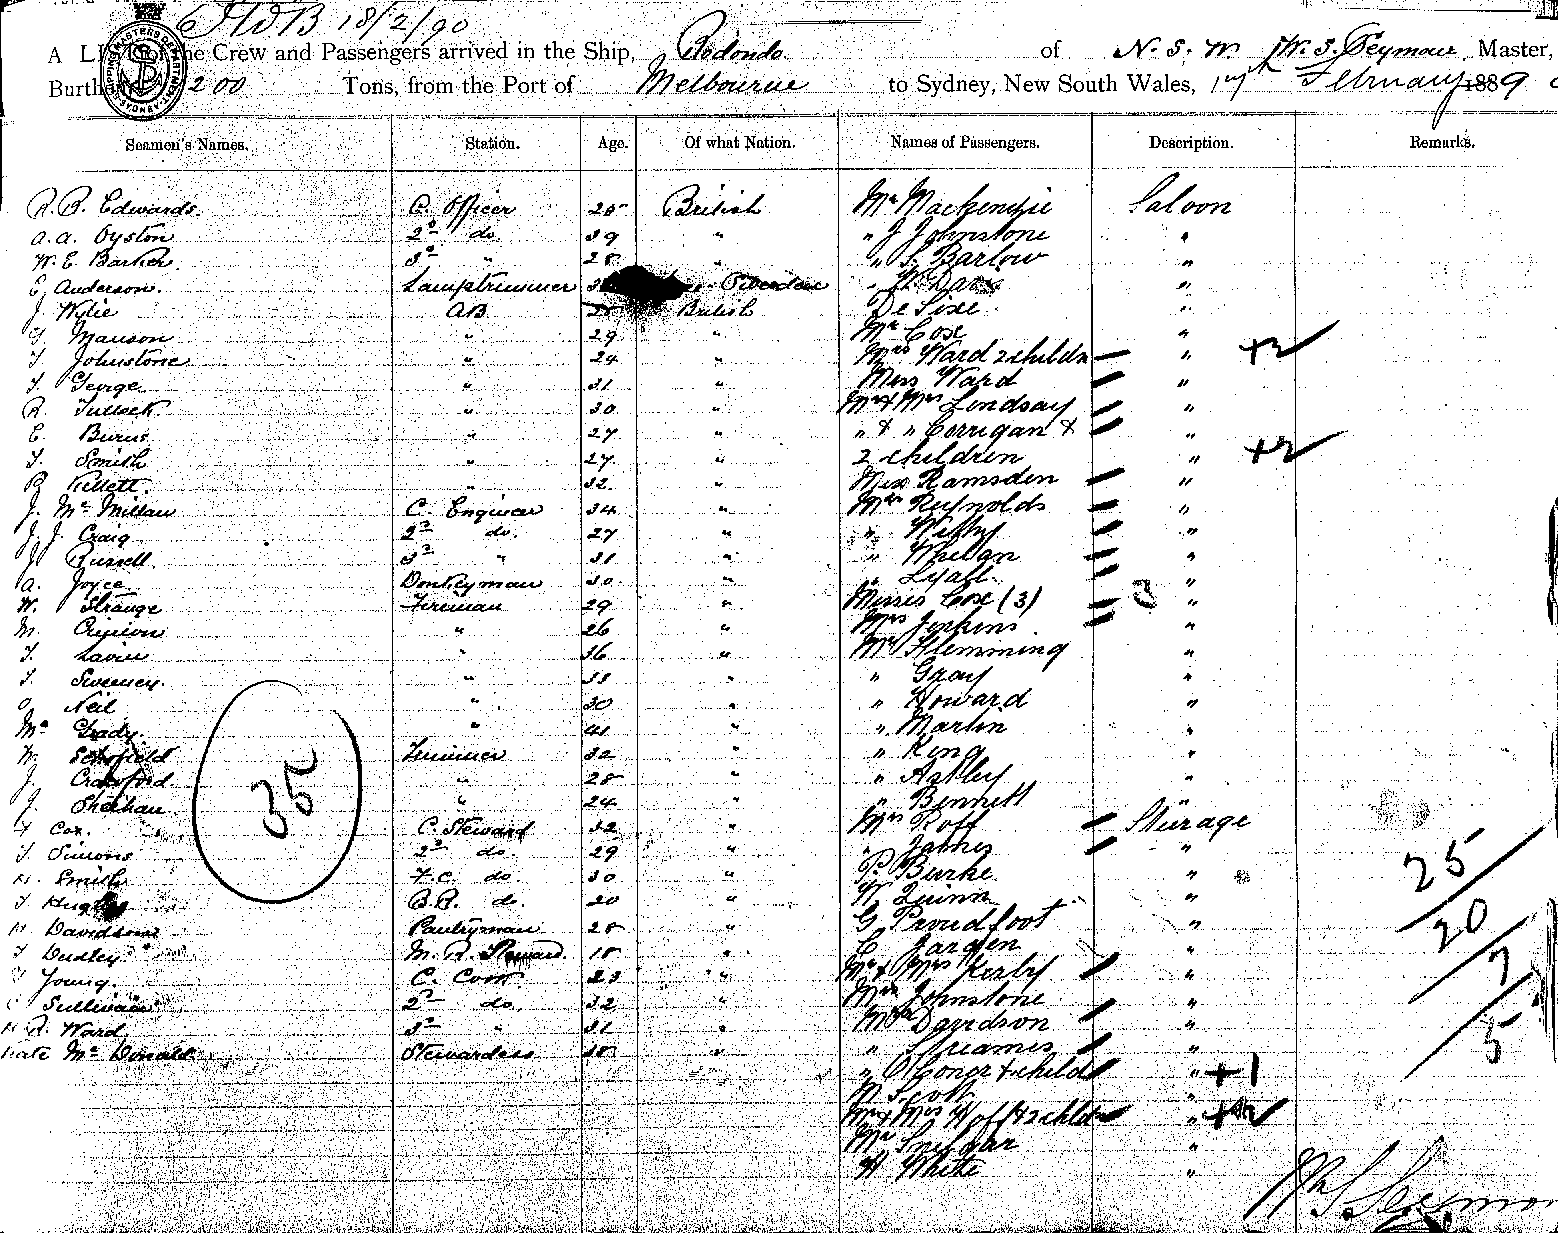 18/2/90
A LI the Crew and Passengers arrived in the Ship, Rodondo of N. S. W. W. S. Seymour, Master,
Burth 200 Tons, from the Port of Melbourne to Sydney, New South Wales, 17th February 1889
SHIPPING MASTERS DEPARTMENT SYDNEY
Seamen's Names. Station. Age. Of what Nation. Names of Passengers. Description. Remarks.
R. B. Edwards. C. Officer 28 British Mr Mackenzie Saloon
A. A. Oyston 2d do 39 " " J Johnstone "
W. E. Barker. 3d " 28 " " S. Barlow "
Anderson. Lamptrimmer " "
J. Wylie AB 28 British De Sixe "
Manson " 29 " Mr Cox "
T Johnstone " 24 " Mrs Ward 2 childn " +2
T George " 31 " Miss Ward "
R. Tullock " 30 " Mr & Mrs Lindsay "
C. Burns " 27 " " & " Corrigan & "
T. Smith " 27 " 2 children " +2
R Kellett. " 32 " Miss Ramsden "
J. Mc Millan C Engineer 34 " Mrs Reynolds "
J. J. Craig 2d do. 27 " " "
J Russell 3d " 31 " " Whelan "
A. Joyce Donkeyman 30 " " Lyall "
W. Strange Fireman 29 " Misses Cox (3) 3 "
M. " 26 " Mrs Jenkins "
T. Lavin " 36 " Mr Flemming "
T. Sweeney. " 38 " " Gray "
Neil " 30 " " Howard "
Mc Grady. " 41 " " Martin "
W. Schofield Trimmer 32 " " King "
J. Crawford " 28 " " Astley "
J. Sheehan " 24 " " Bennett "
F Cox. C. Steward 32 " Mrs Roff Steerage
T. Simons 2d do. 29 " " James "
H. Smith F. C. do. 30 " P. Burke "
T Hughes B. R. do. 20 " W Quinn "
H Davidson Pantryman 28 " G Proudfoot "
T Dudley M. R. Steward. 18 " C "
Young. C. Cook 23 " Mr & Mrs Kerby "
C Sullivan 2d do. 32 " Johnstone "
H R. Ward 3d " 31 " Davidson "
Kate Mc Donald Stewardess 38 " " "
" & child " +1
M Scott "
Mr & Mrs 2 chldn "
Mr "
W White "
35
25
20
7
5
Wm S Seymour